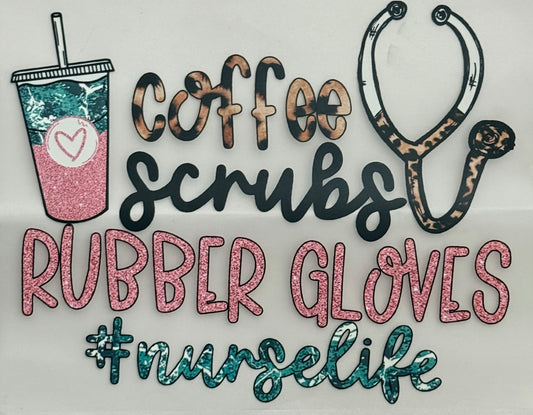 coffee
scrubs
RUBBER GLOVES
#nurselife